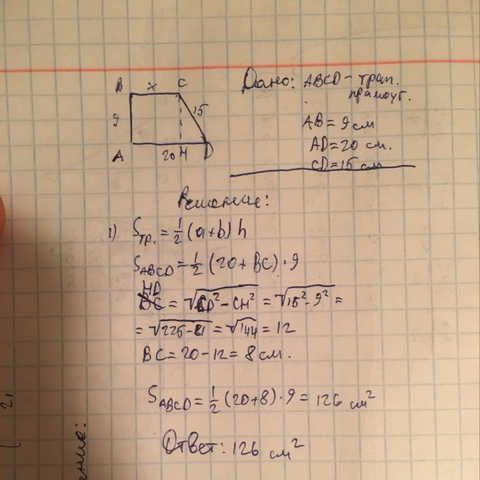 B x C
9 15
A 20 H D
Дано: ABCD - трап.
прямоуг.
AB = 9 см
AD = 20 см.
CD = 15 см
Решение:
1) Sтр. = 1/2 (a+b) h
SABCD = 1/2 (20 + BC) · 9
HD = √CD² - CH² = √15² - 9² =
= √225 - 81 = √144 = 12
BC = 20 - 12 = 8 см.
SABCD = 1/2 (20 + 8) · 9 = 126 см²
Ответ: 126 см²